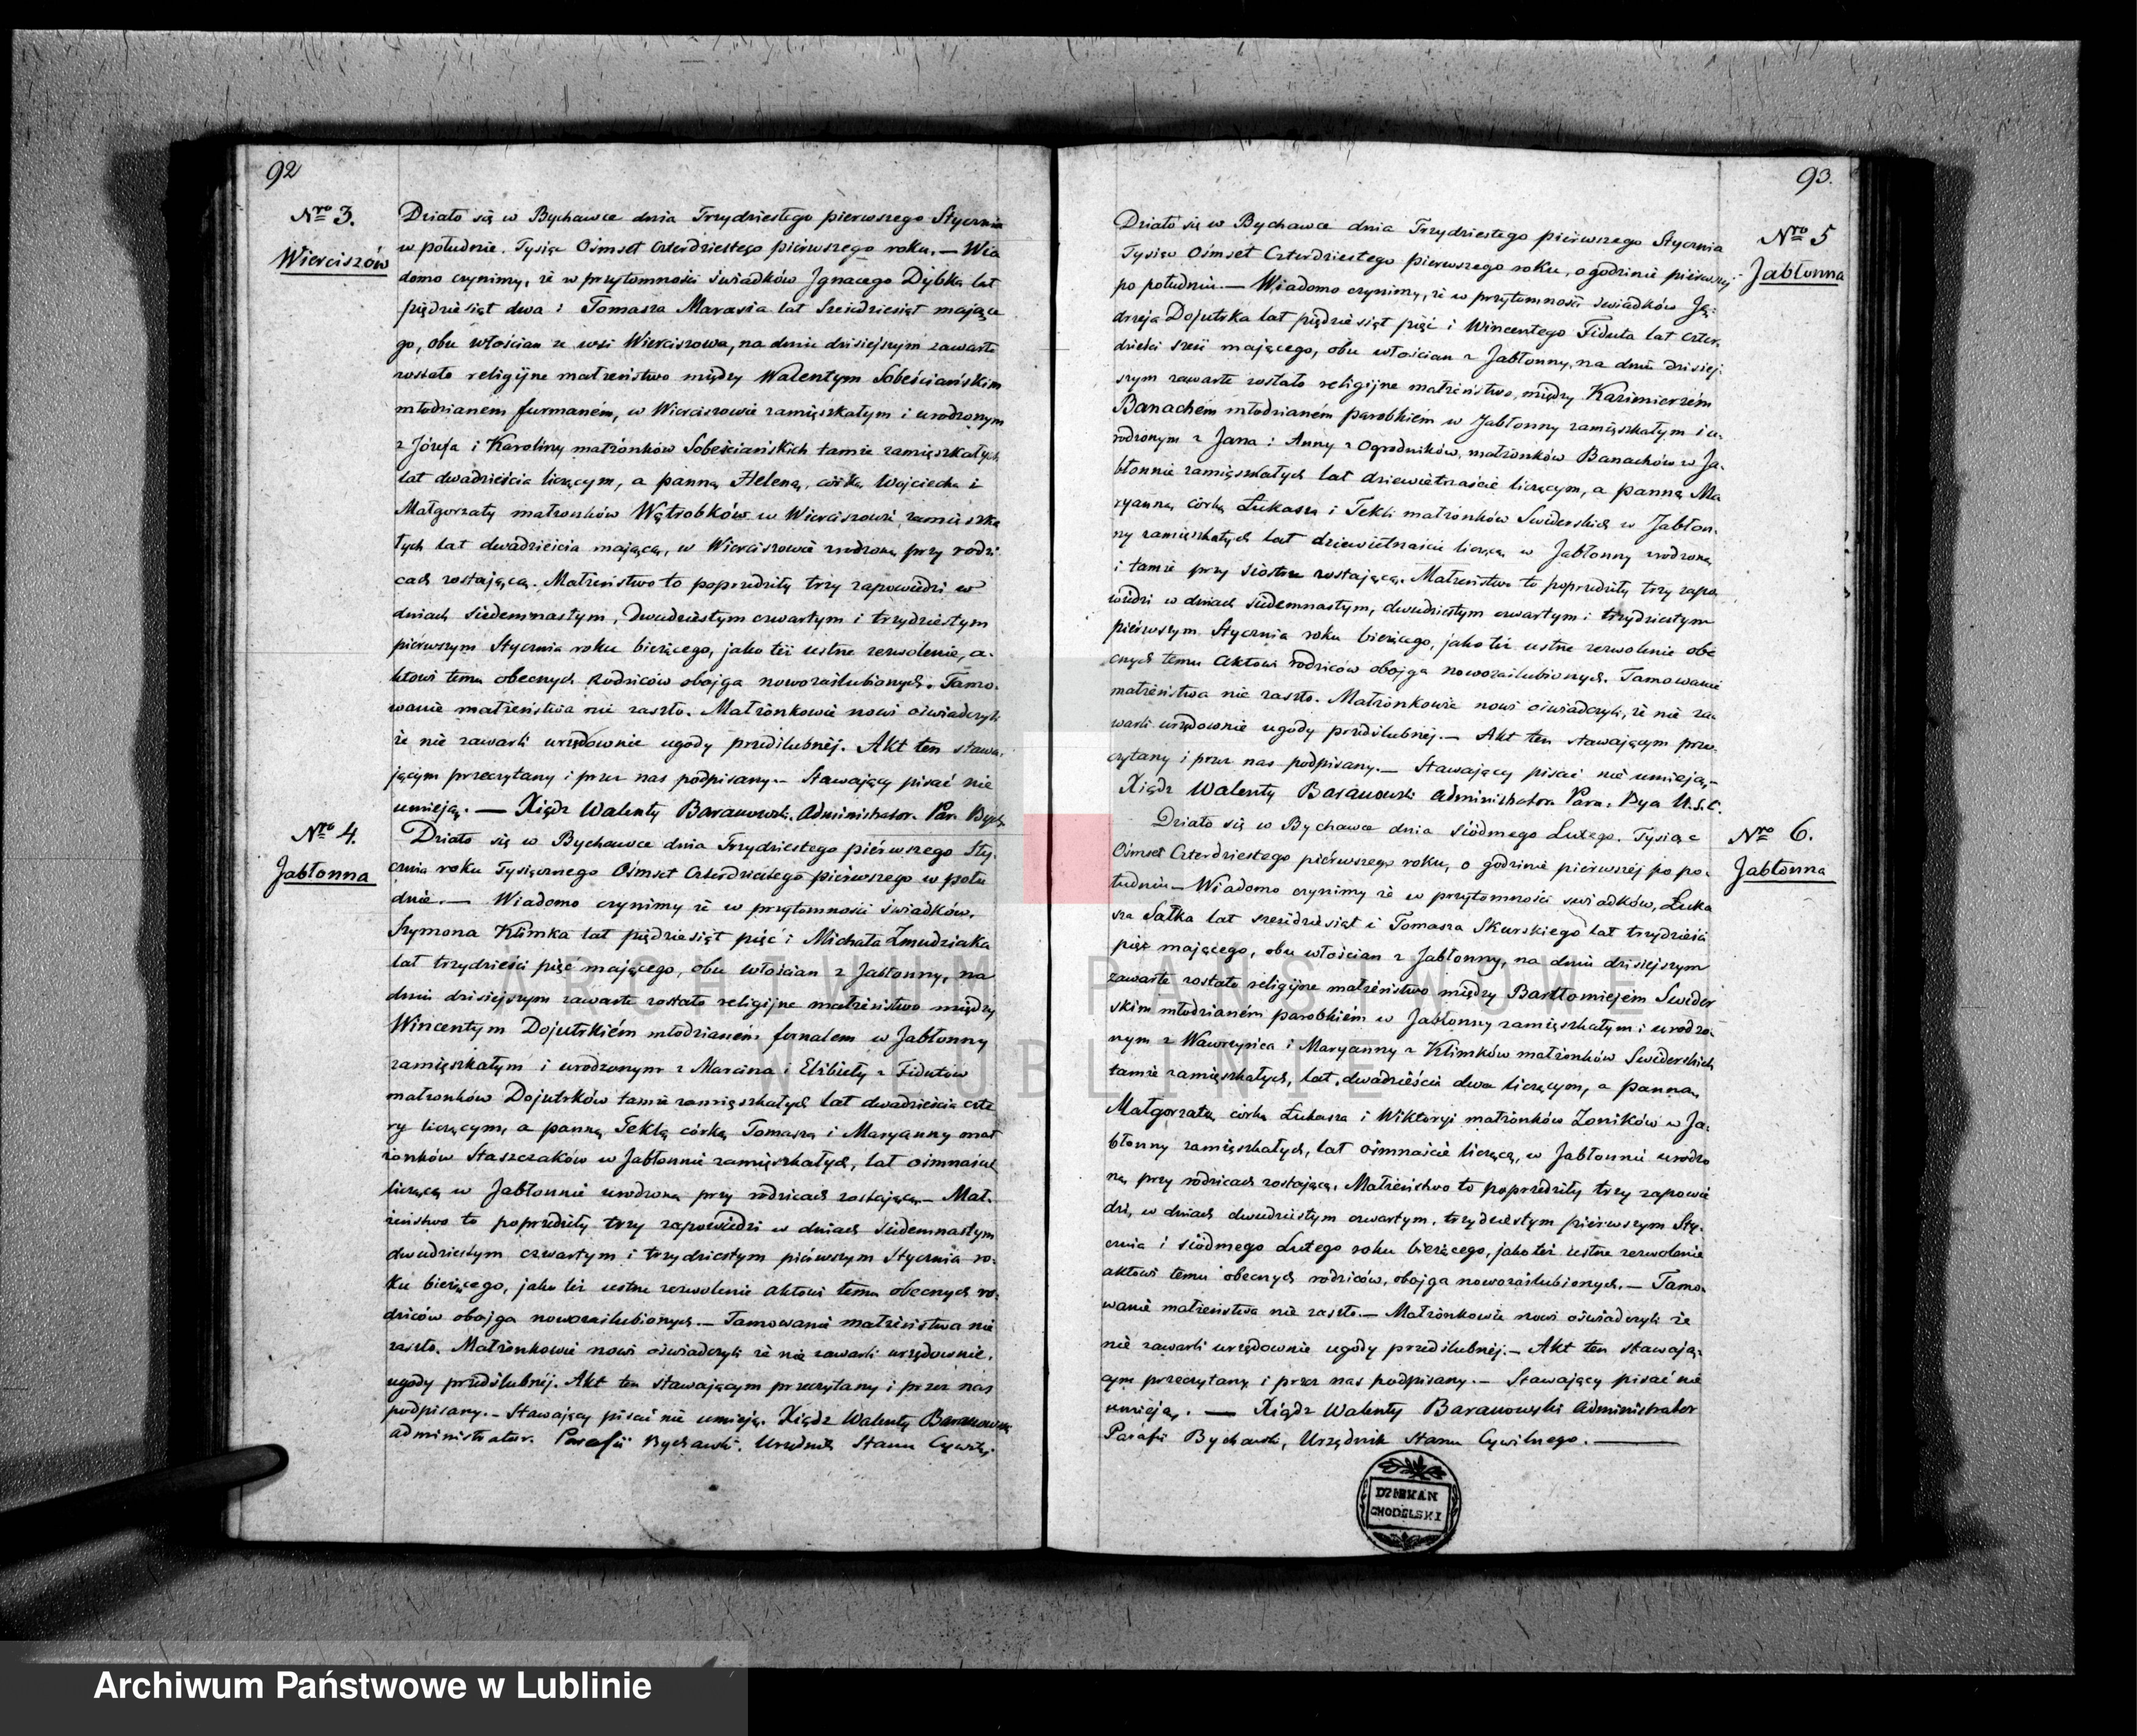 92
Nro 3.
Wierciszów
Działo się w Bychawce dnia Trzydziestego pierwszego Stycznia
w południe. Tysiąc Ośmset Czterdziestego pierwszego roku. — Wia
domo czynimy, że w przytomności świadków Jgnacego Dybka lat
pięćdziesiąt dwa i Tomasza Marasia lat Sześćdziesiąt mające
go, obu włościan ze wsi Wierciszowa, na dniu dzisiejszym zawarte
zostało religijne małżeństwo między Walentym Sobeściańskim
młodzianem furmanem, w Wierciszowie zamięszkałym i urodzonym
z Józefa i Karoliny małżonków Sobeściańskich tamże zamięszkałych
lat dwadzieścia liczącym, a panną Heleną, córką Wojciecha i
Małgorzaty małżonków Wątrobków w Wierciszowie zamieszka
łych lat dwadzieścia mającą, w Wierciszowie urodzoną przy rodzi
cach zostającą. Małżeństwo to poprzedziły trzy zapowiedzi w
dniach siedemnastym, Dwudziestym czwartym i trzydziestym
pierwszym Stycznia roku bieżącego, jako też ustne zezwolenie, a-
ktowi temu obecnych Rodziców obojga nowozaślubionych. Tamo-
wanie małżeństwa nie zaszło. Małżonkowie nowi oświadczyli
że nie zawarli urzędownie ugody przedślubnéj. Akt ten stawa-
jącym przeczytany i przez nas podpisany. — Stawający pisać nie
umieją. — Xiądz Walenty Baranowski. Administrator. Par. Bych.
Nro 4.
Jabłonna
Działo się w Bychawce dnia Trzydziestego piérwszego Sty-
cznia roku Tysiącznego Ośmset Czterdziestego piérwszego w połu
dnie. — Wiadomo czynimy że w przytomności świadków.
Szymona Klimka lat pięćdziesiąt pięć i Michała Żmudziaka
lat trzydzieści pięć mającego, obu włościan z Jabłonny, na
dniu dzisiejszym zawarte zostało religijne małżeństwo między
Wincentym Dojutrkiém młodzianém fornalem w Jabłonny
zamięszkałym i urodzonym z Marcina i Elżbiety z Fidutów
małżonków Dojutrków tamże zamięszkałych lat dwadzieścia czte
ry liczącym, a panną Teklą córką Tomasza i Maryanny mał
żonków Staszczaków w Jabłonnie zamięszkałych, lat ośmnaście
liczącą w Jabłonnie urodzoną przy rodzicach zostającą. — Mał-
żeństwo to poprzedziły trzy zapowiedzi w dniach siedemnastym
dwudziestym czwartym i trzydziestym piérwszym Stycznia ro-
ku bieżącego, jako też ustne zezwolenie aktowi temu obecnych ro-
dziców obojga nowozaślubionych. — Tamowanie małżeństwa nie
zaszło. Małżonkowie nowi oświadczyli że nie zawarli urzędownie.
ugody przedślubnéj. Akt ten stawającym przeczytany i przez nas
podpisany. — Stawający pisać nie umieją. Xiądz Walenty Baranowski
administrator. Parafii Bychawki. Urzędnik Stanu Cywilnego
93.
Nro 5
Jabłonna
Działo się w Bychawce dnia Trzydziestego piérwszego Stycznia
Tysiąc Ośmset Czterdziestego pierwszego roku, o godzinie pierwszéj
po południu. — Wiadomo czynimy, że w przytomności świadków Ję-
drzeja Dojutrka lat pięćdziesiąt pięć i Wincentego Fiduta lat czter-
dzieści sześć mającego, obu włościan z Jabłonny, na dniu dzisiej
szym zawarte zostało religijne małżeństwo, między Kazimierzém
Banachém młodzianém parobkiém w Jabłonny zamięszkałym i u-
rodzonym z Jana i Anny z Ogrodników, małżonków Banachów w Ja-
błonnie zamięszkałych lat dziewiętnaście liczącym, a panną Ma
ryanną córką Łukasza i Tekli małżonków Swiderskich w Jabłon-
ny zamięszkałych lat dziewiętnaście liczącą w Jabłonny urodzoną
i tamże przy siostrze zostającą. Małżeństwo to poprzedziły trzy zapo
wiedzi w dniach siedemnastym, dwudziestym czwartym i trzydziestym
piérwszym Stycznia roku bieżącego, jako też ustne zezwolenie obe
cnych temu Aktowi rodziców obojga nowozaślubionych. Tamowanie
małżeństwa nie zaszło. Małżonkowie nowi oświadczyli, że nie za-
warli urzędownie ugody przedślubnéj. — Akt ten stawającym prze-
czytany i przez nas podpisany. — Stawający pisać nie umieją. —
Xiądz Walenty Baranowski Administrator Para. Bya U.S.C.
Nro 6.
Jabłonna
Działo się w Bychawce dnia siódmego Lutego. Tysiąc
Ośmset Czterdziestego piérwszego roku, o godzinie pierwszéj po po-
łudniu — Wiadomo czynimy że w przytomności świadków, Łuka
sza Sałka lat sześćdziesiąt i Tomasza Skurskiego lat trzydzieści
pięć mającego, obu włościan z Jabłonny, na dniu dzisiejszym
zawarte zostało religijne małżeństwo między Bartłomiejém Swider
skim młodzianém parobkiém w Jabłonny zamięszkałym i urodzo-
nym z Wawrzyńca i Maryanny z Klimków małżonków Swiderskich
tamże zamięszkałych, lat, dwadzieścia dwa liczącym, a panną
Małgorzatą córką Łukasza i Wiktoryi małżonków Zoników w Ja-
błonny zamięszkałych, lat ośmnaście liczącą, w Jabłonnie urodzo
ną przy rodzicach zostającą. Małżeństwo to poprzedziły trzy zapowie
dzi, w dniach dwudziestym czwartym, trzydziestym piérwszym Sty-
cznia i siódmego Lutego roku bieżącego, jako też ustne zezwolenie
aktowi temu obecnych rodziców, obojga nowozaślubionych. — Tamo-
wanie małżeństwa nie zaszło. — Małżonkowie nowi oświadczyli że
nie zawarli urzędownie ugody przedślubnéj. — Akt ten stawają-
cym przeczytany i przez nas podpisany. — Stawający pisać nie
umieją. — Xiądz Walenty Baranowski Administrator
Parafii Bychawki, Urzędnik Stanu Cywilnego.
DZIEKAN
CHODELSKI
ARCHIWUM PAŃSTWOWE
W LUBLINIE
Archiwum Państwowe w Lublinie